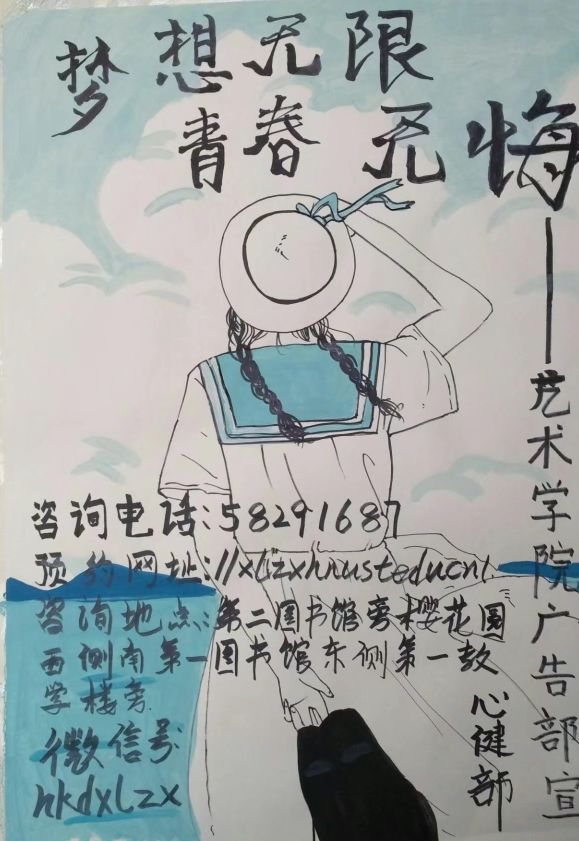 梦想无限
青春无悔
——艺术学院广告部宣
咨询电话:58291687
预约网址://xlzxhnusteducn/
咨询地点:第二图书馆旁樱花园
西侧南第一图书馆东侧第一教
学楼旁
微信号
hkdxlzx
心健部